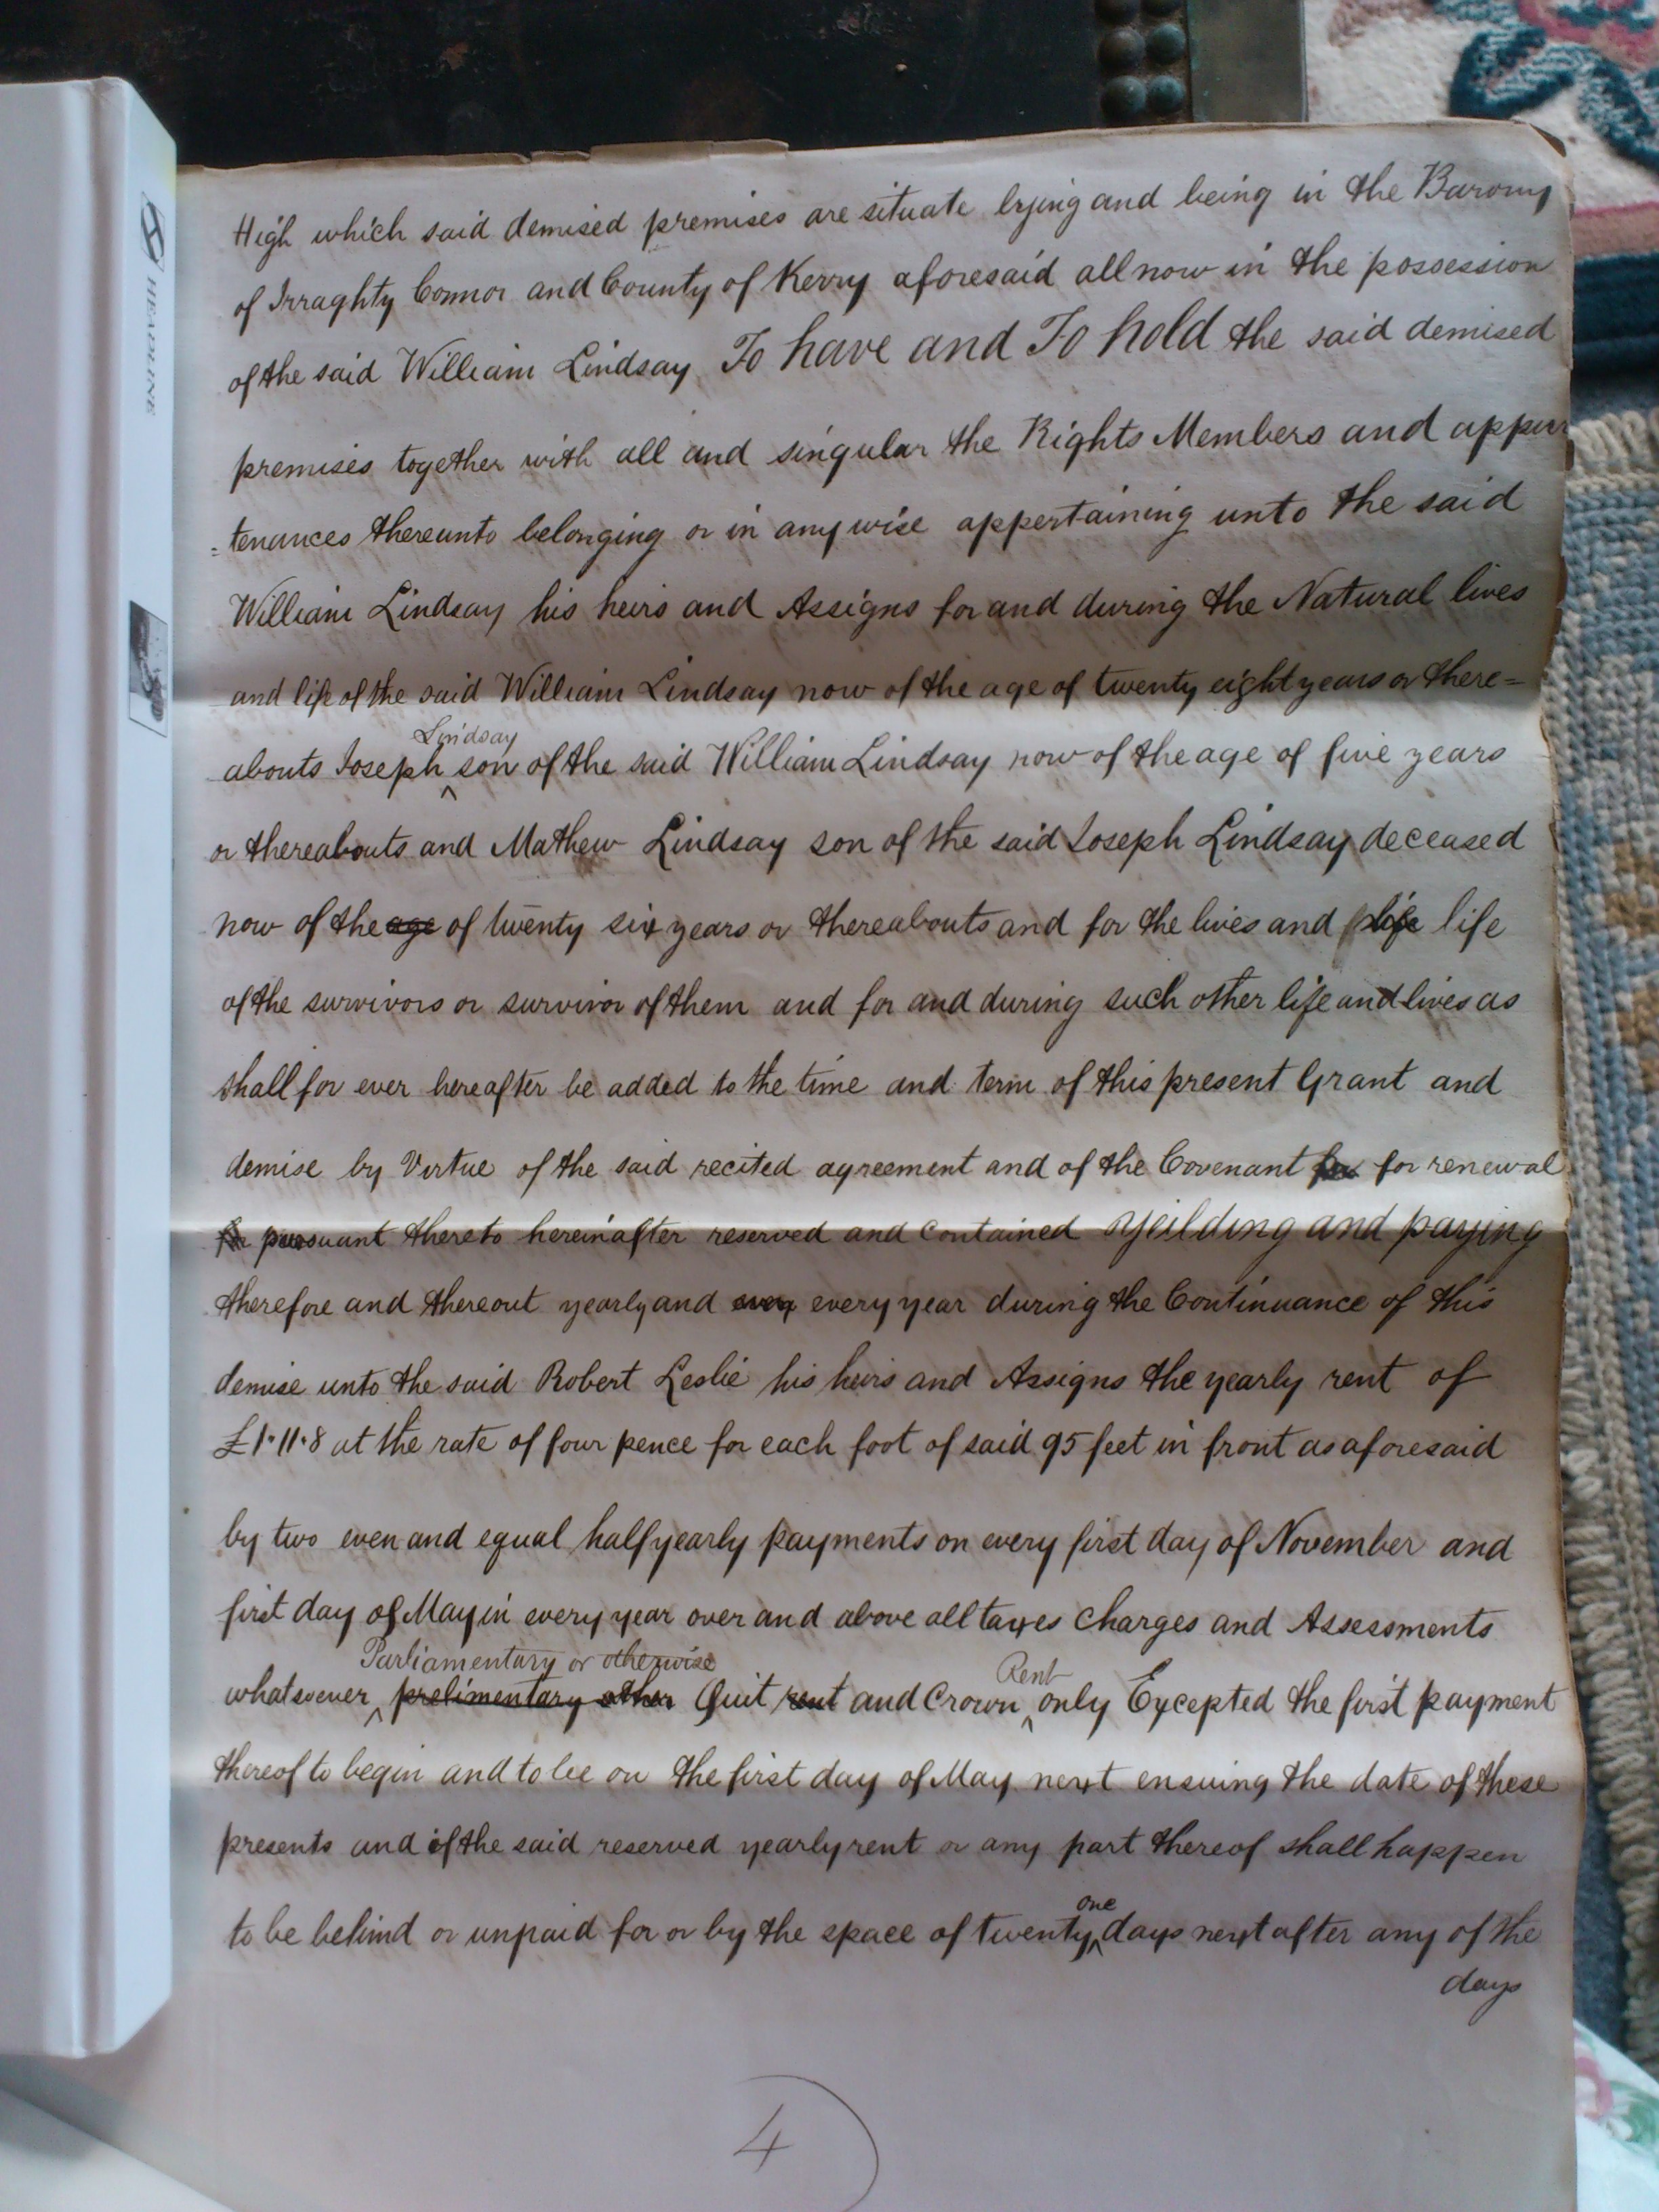 HEADLINE
High which said demised premises are situate lying and being in the Barony
of Irraghty Connor and County of Kerry aforesaid all now in the possession
of the said William Lindsay To have and To hold the said demised
premises together with all and singular the Rights Members and appur
=tenances thereunto belonging or in any wise appertaining unto the said
William Lindsay his heirs and Assigns for and during the Natural lives
and life of the said William Lindsay now of the age of twenty eight years or there=
Lindsay
abouts Joseph ^ son of the said William Lindsay now of the age of five years
or thereabouts and Mathew Lindsay son of the said Joseph Lindsay deceased
now of the age of twenty six years or thereabouts and for the lives and life life
of the survivors or survivor of them and for and during such other life and lives as
shall for ever hereafter be added to the time and term of this present Grant and
demise by Virtue of the said recited agreement and of the Covenant for for renewal
pursuant thereto hereinafter reserved and contained Yeilding and paying
therefore and thereout yearly and every every year during the Continuance of this
demise unto the said Robert Leslie his heirs and Assigns the yearly rent of
£1·11·8 at the rate of four pence for each foot of said 95 feet in front as aforesaid
by two even and equal half yearly payments on every first day of November and
first day of May in every year over and above all taxes Charges and Assessments
Parliamentary or otherwise Rent
whatsoever ^ prelimentary other Quit rent and Crown ^ only Excepted the first payment
thereof to begin and to be on the first day of May next ensuing the date of these
presents and if the said reserved yearly rent or any part thereof shall happen
one
to be behind or unpaid for or by the space of twenty ^ days next after any of the
days
4